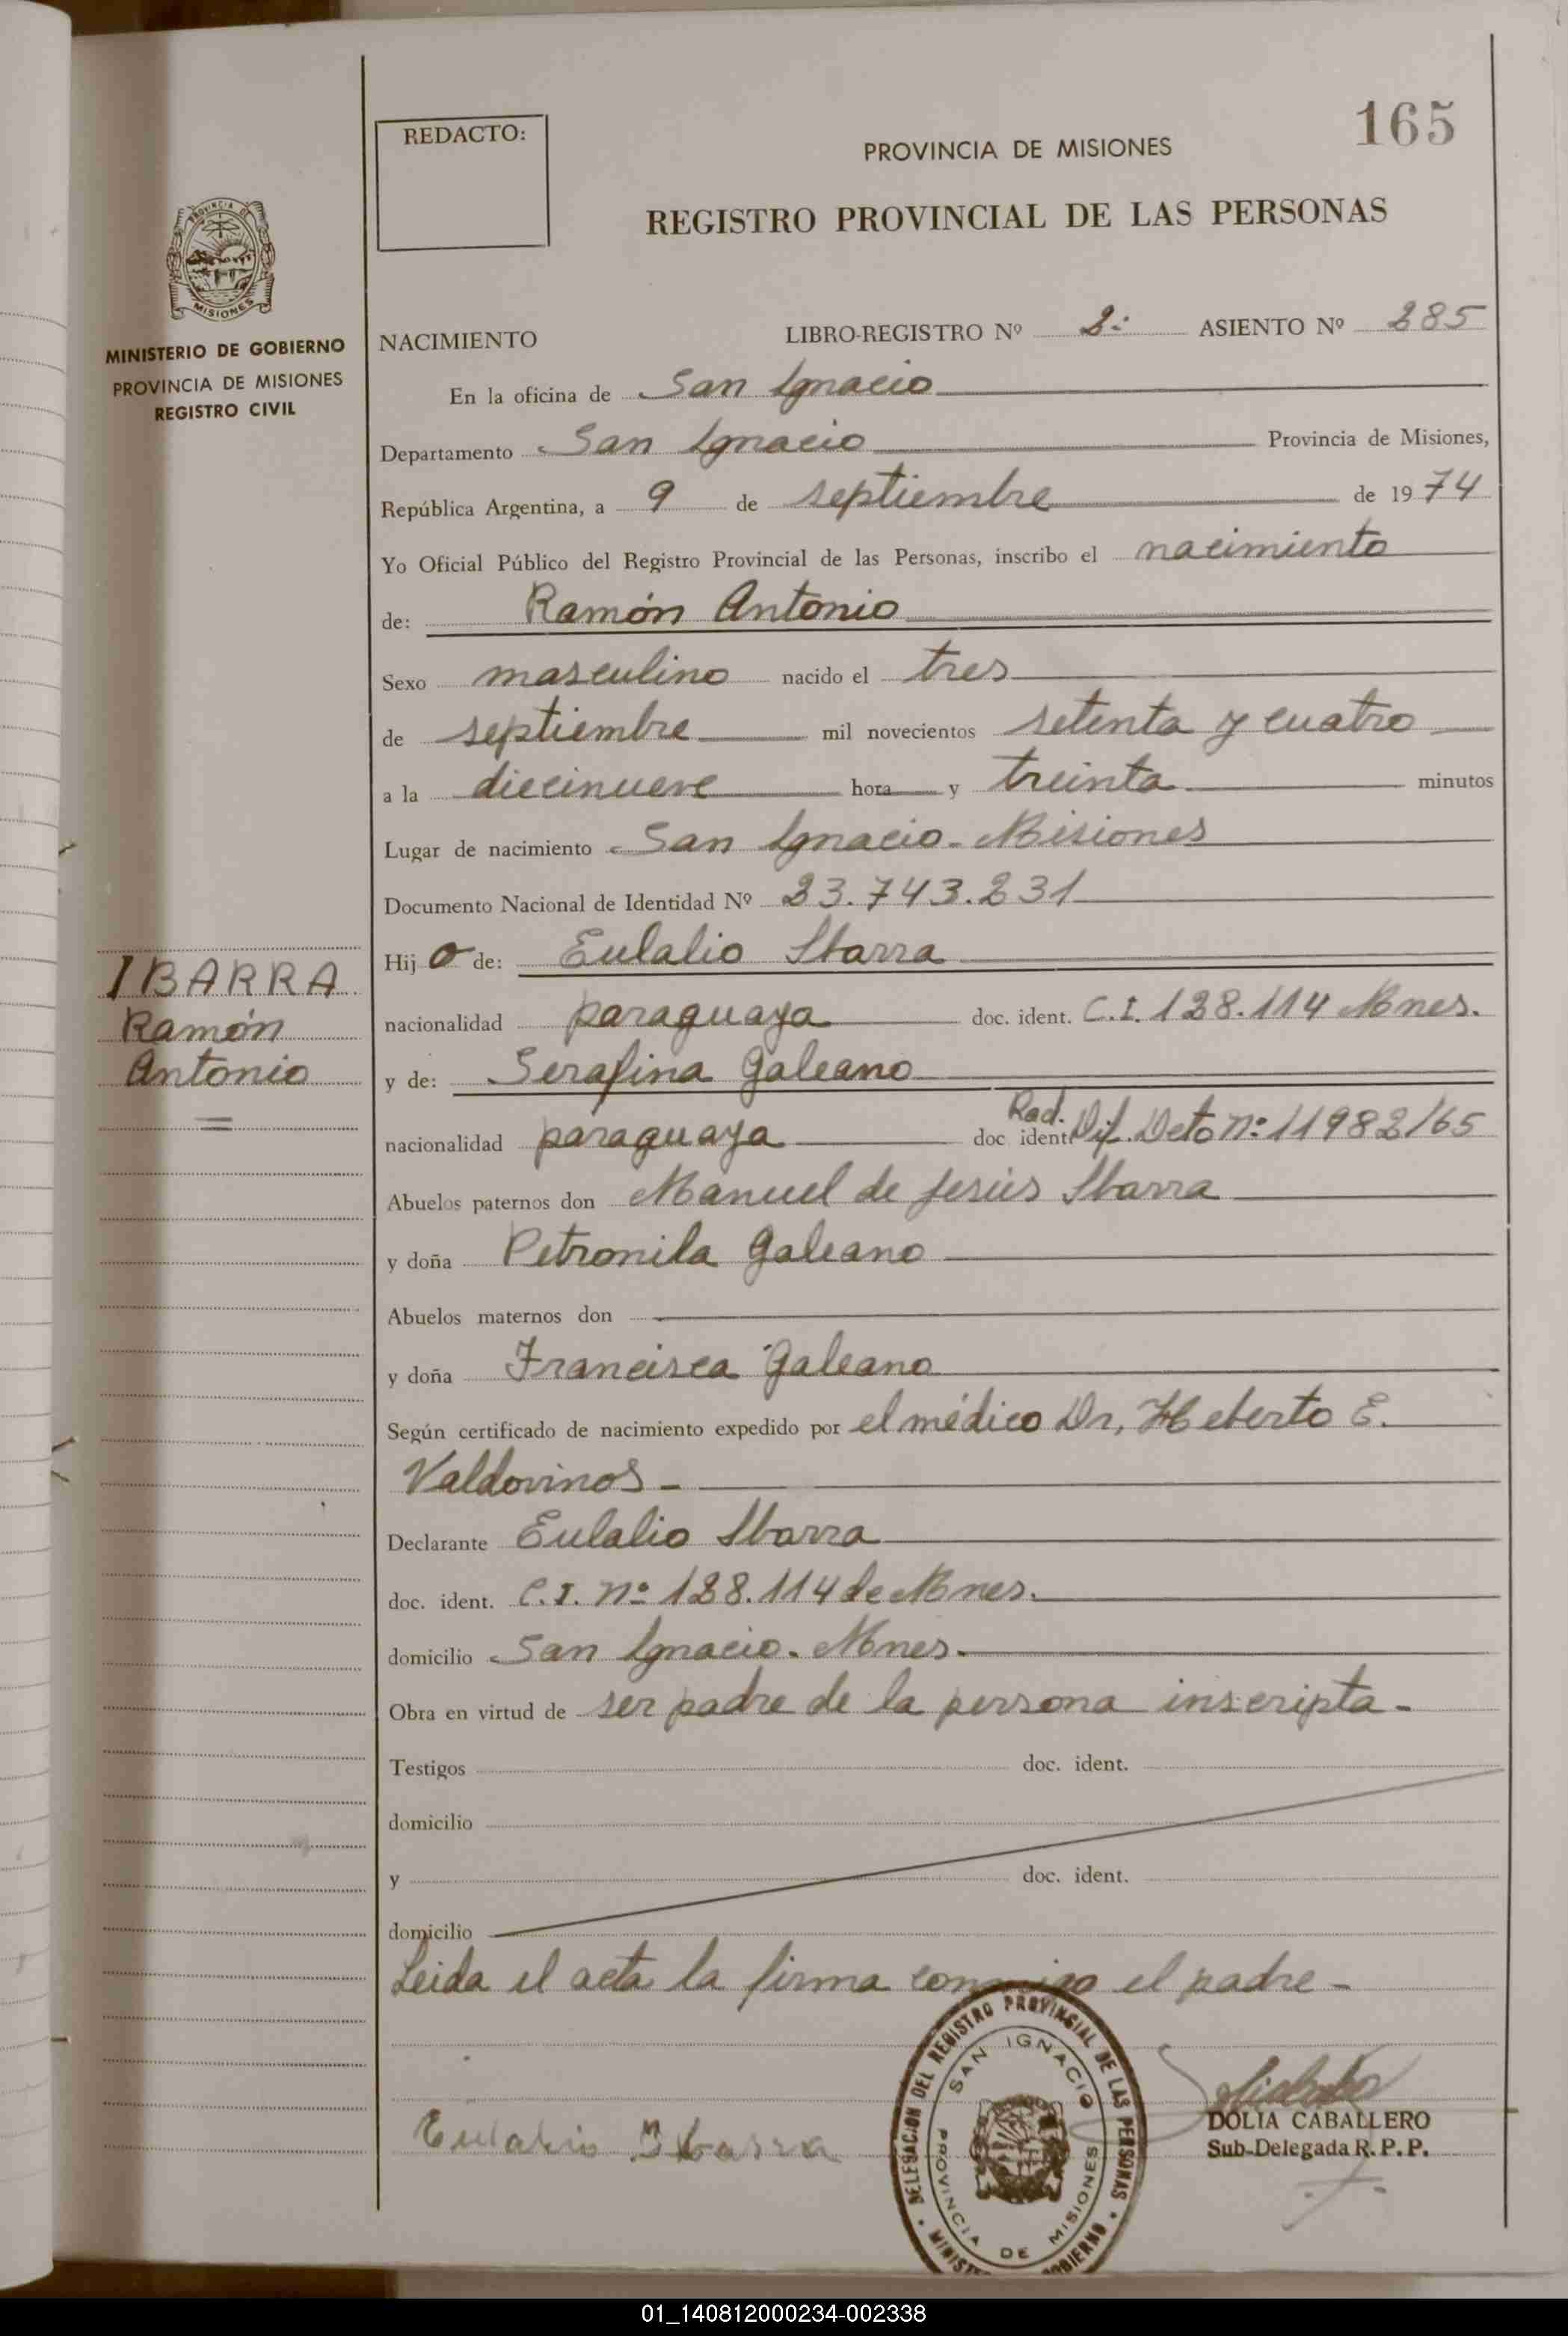 165
REDACTO:
PROVINCIA DE MISIONES
REGISTRO PROVINCIAL DE LAS PERSONAS
PROVINCIA DE
MISIONES
MINISTERIO DE GOBIERNO
PROVINCIA DE MISIONES
REGISTRO CIVIL
NACIMIENTO LIBRO-REGISTRO Nº 2: ASIENTO Nº 285
En la oficina de San Ignacio
Departamento San Ignacio Provincia de Misiones,
República Argentina, a 9 de septiembre de 1974
Yo Oficial Público del Registro Provincial de las Personas, inscribo el nacimiento
de: Ramón Antonio
Sexo masculino nacido el tres
de septiembre mil novecientos setenta y cuatro
a la diecinueve hora y treinta minutos
Lugar de nacimiento San Ignacio - Misiones
Documento Nacional de Identidad Nº 23.743.231
IBARRA
Ramón
Antonio
Hijo de: Eulalio Ibarra
nacionalidad paraguaya doc. ident. C.I. 128.114 Mnes.
y de: Serafina Galeano
nacionalidad paraguaya doc ident. Rad. Dif. Dcto nº 11982/65
Abuelos paternos don Manuel de Jesús Ibarra
y doña Petronila Galeano
Abuelos maternos don
y doña Francisca Galeano
Según certificado de nacimiento expedido por el médico Dr, Heberto E.
Valdovinos -
Declarante Eulalio Ibarra
doc. ident. C.I. nº 128.114 de Mnes.
domicilio San Ignacio. Mnes.
Obra en virtud de ser padre de la persona inscripta -
Testigos doc. ident.
domicilio
y doc. ident.
domicilio
Leida el acta la firma conmigo el padre -
DELEGACION DEL REGISTRO PROVINCIAL DE LAS PERSONAS
SAN IGNACIO
PROVINCIA DE MISIONES
Eulalio Ibarra
DOLIA CABALLERO
Sub-Delegada R. P. P.
01_140812000234-002338